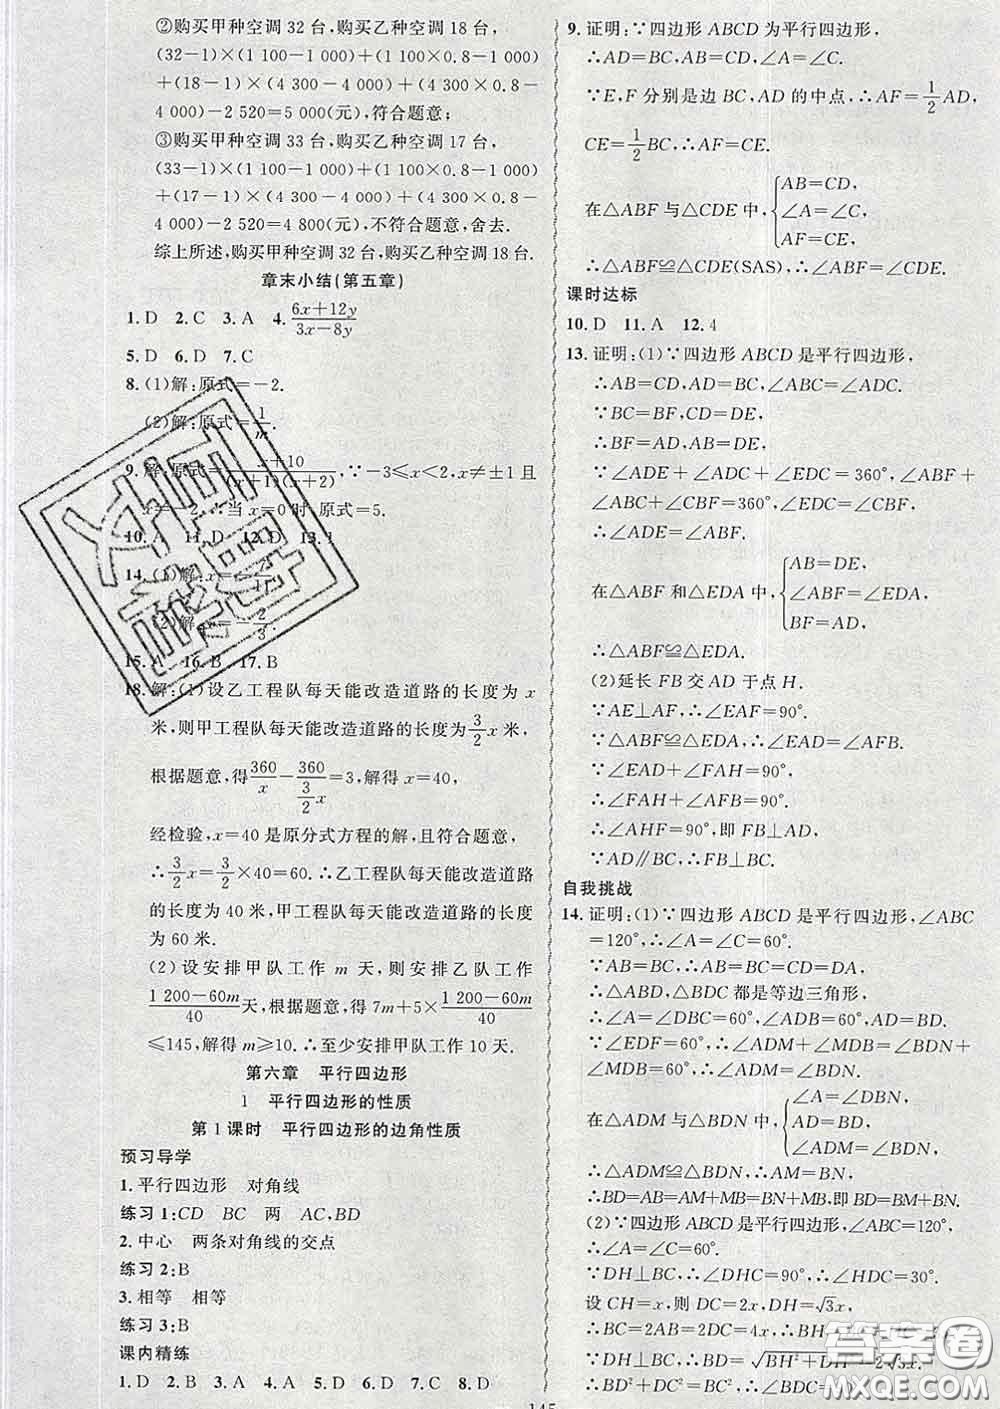 ②购买甲种空调 32 台,购买乙种空调 18 台,
(32-1)×(1 100-1 000)+(1 100×0.8-1 000)
+(18-1)×(4 300-4 000)+(4 300×0.8-
4 000)-2 520=5 000(元),符合题意;
③购买甲种空调 33 台,购买乙种空调 17 台,
(33-1)×(1 100-1 000)+(1 100×0.8-1 000)
+(17-1)×(4 300-4 000)+(4 300×0.8-
4 000)-2 520=4 800(元),不符合题意,舍去.
综上所述,购买甲种空调 32 台,购买乙种空调 18 台.
章末小结(第五章)
1. D 2. C 3. A 4. (6x+12y)/(3x-8y)
5. D 6. D 7. C
8. (1)解:原式=-2.
(2)解:原式=1/m.
9. 解:原式=(x+10)/((x+1)(x+2)),∵-3≤x<2,x≠±1 且
x≠-2,∴当 x=0 时,原式=5.
10. A 11. D 12. D 13. 1
14. (1)解:x=
(2)解:x=-2/3.
15. A 16. B 17. B
18. 解:(1)设乙工程队每天能改造道路的长度为 x
米,则甲工程队每天能改造道路的长度为 3/2 x 米,
根据题意,得 360/x - 360/(3/2 x) =3,解得 x=40,
经检验,x=40 是原分式方程的解,且符合题意,
∴3/2 x=3/2×40=60.∴乙工程队每天能改造道路
的长度为 40 米,甲工程队每天能改造道路的长度
为 60 米.
(2)设安排甲队工作 m 天,则安排乙队工作
(1 200-60m)/40 天,根据题意,得 7m+5×(1 200-60m)/40
≤145,解得 m≥10.∴至少安排甲队工作 10 天.
第六章 平行四边形
1 平行四边形的性质
第 1 课时 平行四边形的边角性质
预习导学
1. 平行四边形 对角线
练习 1:CD BC 两 AC,BD
2. 中心 两条对角线的交点
练习 2:B
3. 相等 相等
练习 3:B
课内精练
1. D 2. B 3. A 4. A 5. D 6. C 7. C 8. D
9. 证明:∵四边形 ABCD 为平行四边形,
∴AD=BC,AB=CD,∠A=∠C.
∵E,F 分别是边 BC,AD 的中点,∴AF=1/2 AD,
CE=1/2 BC,∴AF=CE.
在△ABF 与△CDE 中,{AB=CD, ∠A=∠C, AF=CE,
∴△ABF≌△CDE(SAS),∴∠ABF=∠CDE.
课时达标
10. D 11. A 12. 4
13. 证明:(1)∵四边形 ABCD 是平行四边形,
∴AB=CD,AD=BC,∠ABC=∠ADC.
∵BC=BF,CD=DE,
∴BF=AD,AB=DE,
∵∠ADE+∠ADC+∠EDC=360°,∠ABF+
∠ABC+∠CBF=360°,∠EDC=∠CBF,
∴∠ADE=∠ABF.
在△ABF 和△EDA 中,{AB=DE, ∠ABF=∠EDA, BF=AD,
∴△ABF≌△EDA.
(2)延长 FB 交 AD 于点 H.
∵AE⊥AF,∴∠EAF=90°.
∵△ABF≌△EDA,∴∠EAD=∠AFB.
∵∠EAD+∠FAH=90°,
∴∠FAH+∠AFB=90°.
∴∠AHF=90°,即 FB⊥AD.
∵AD∥BC,∴FB⊥BC.
自我挑战
14. 证明:(1)∵四边形 ABCD 是平行四边形,∠ABC
=120°,∴∠A=∠C=60°.
∵AB=AD,∴AB=BC=CD=DA,
∴△ABD,△BDC 都是等边三角形,
∴∠A=∠DBC=60°,∠ADB=60°,AD=BD.
∵∠EDF=60°,∴∠ADM+∠MDB=∠BDN+
∠MDB=60°,∴∠ADM=∠BDN.
在△ADM 与△BDN 中,{∠A=∠DBN, AD=BD, ∠ADM=∠BDN,
∴△ADM≌△BDN,∴AM=BN,
∴BD=AB=AM+MB=BN+MB,即 BD=BM+BN.
(2)∵四边形 ABCD 是平行四边形,∠ABC=120°,
∴∠A=∠C=60°.
∵DH⊥BC,∴∠DHC=90°,∴∠HDC=30°.
设 CH=x,则 DC=2x,DH=√3x,
∴BC=2AB=2DC=4x,∴BH=3x,
∴BD=√(BH²+DH²)=2√3x.
∴BD²+DC²=BC²,∴∠BDC=90°.
145
答案圈
MXQE.COM